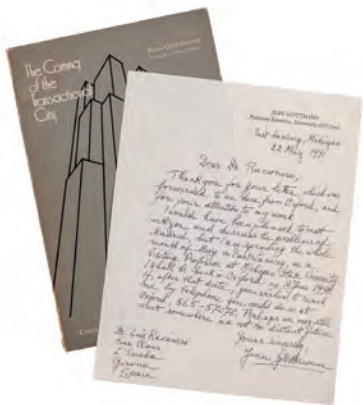 JEAN GOTTMANN
The Coming
of the
Transactional
City
JEAN GOTTMANN
Professor Emeritus, University of Oxford
East Lansing, Michigan
22 May 1991
Dear Dr. Racionero,
Thank you for your letter, which was
forwarded to me here, from Oxford, and
for your attention to my work.
I would have been pleased to meet
with you and discuss the problems of
Madrid, but I am spending the whole
month of May in East Lansing, as a
Visiting Professor at Michigan State University.
I shall be back in Oxford on 2 June 1991.
If, after that date, you wished to reach
me by telephone you could do so at
Oxford, 865-
Perhaps we may still
meet somewhere in a not too distant future.
Yours sincerely,
Jean Gottmann
Dr. Luis Racionero
Casa Claus
L'Escala
Gerona
Spain